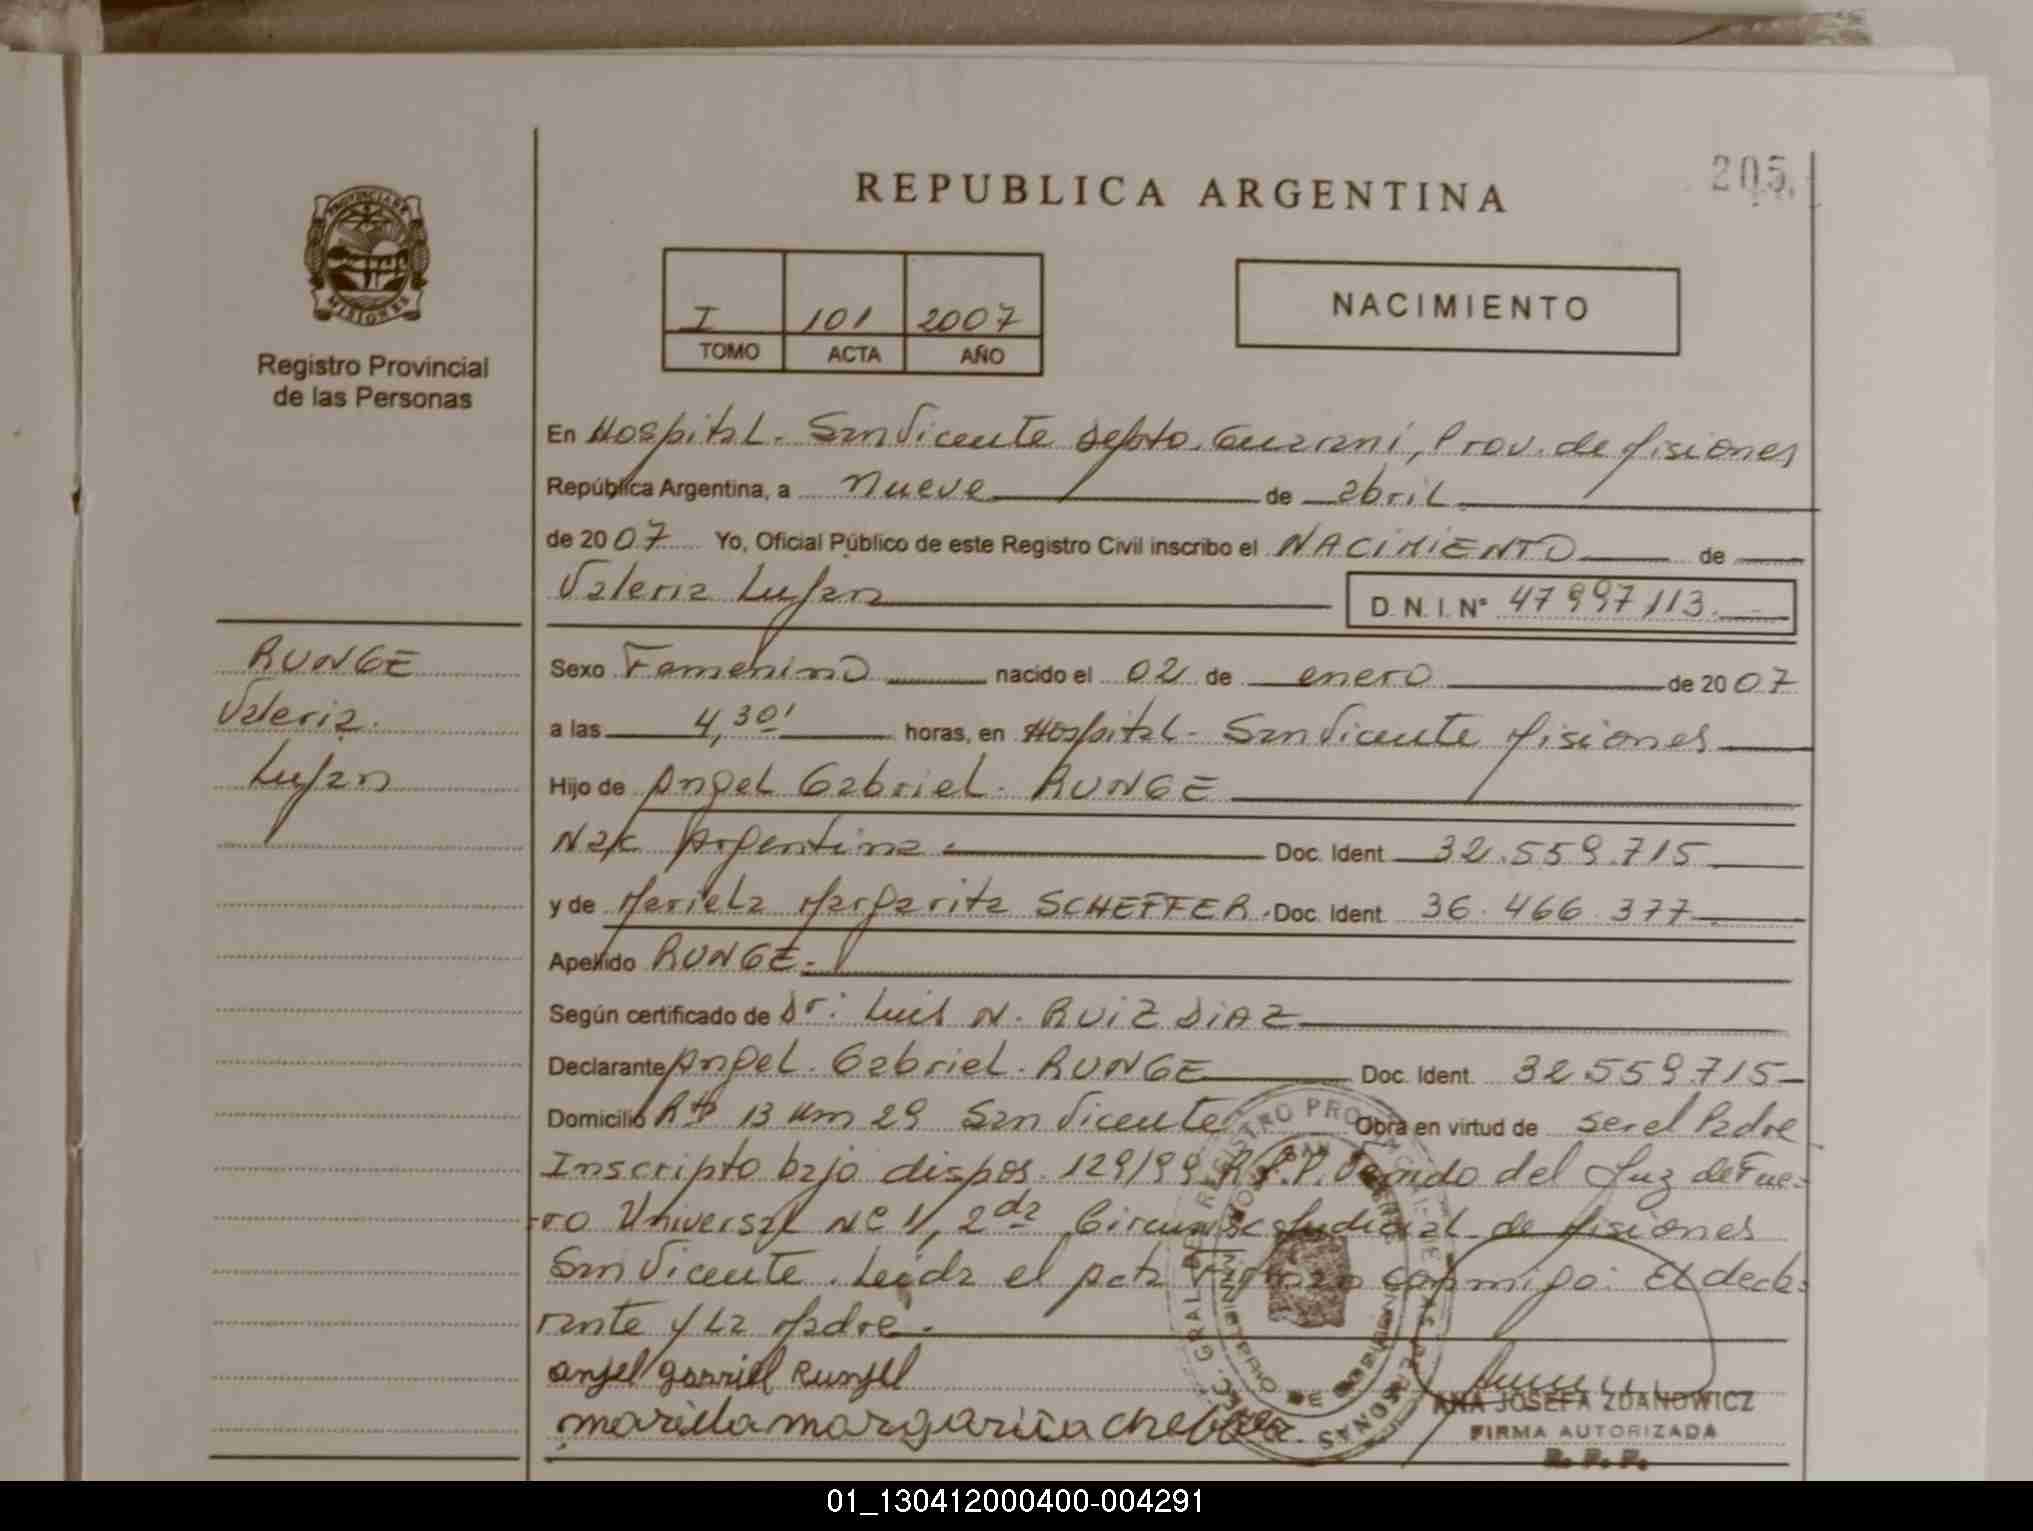 205.
REPUBLICA ARGENTINA
PROVINCIA DE
MISIONES
Registro Provincial
de las Personas
I 101 2007
TOMO ACTA AÑO
NACIMIENTO
En Hospital - San Vicente depto. Guarani, Prov. de Misiones
República Argentina, a nueve de abril
de 2007 Yo, Oficial Público de este Registro Civil inscribo el NACIMIENTO de
Valeria Lujan D. N. I. N° 47997113.
RUNGE
Valeria
Lujan
Sexo Femenino nacido el 02 de enero de 2007
a las 4,30' horas, en Hospital - San Vicente Misiones
Hijo de Angel Gabriel - RUNGE
Nac Argentina - Doc. Ident 32.559.715
y de Mariela Margarita SCHEFFER - Doc. Ident 36.466.377
Apellido RUNGE -
Según certificado de Dr: Luis N. RUIZ DIAZ
Declarante Angel Gabriel RUNGE Doc. Ident. 32559715
Domicilio Rta 13 Km 29 San Vicente Obra en virtud de ser el Padre
Inscripto bajo dispos. 129/99 R.P.P. del Juz de Fue-
ro Universal Nº 1, 2da Circunsc Judicial de Misiones
San Vicente. Leida el acta firman conmigo: El decla-
rante y La Madre -
angel gabriel Rungel
mariela margarita
ANA JOSEFA ZDANOWICZ
FIRMA AUTORIZADA
R. P. P.
01_130412000400-004291